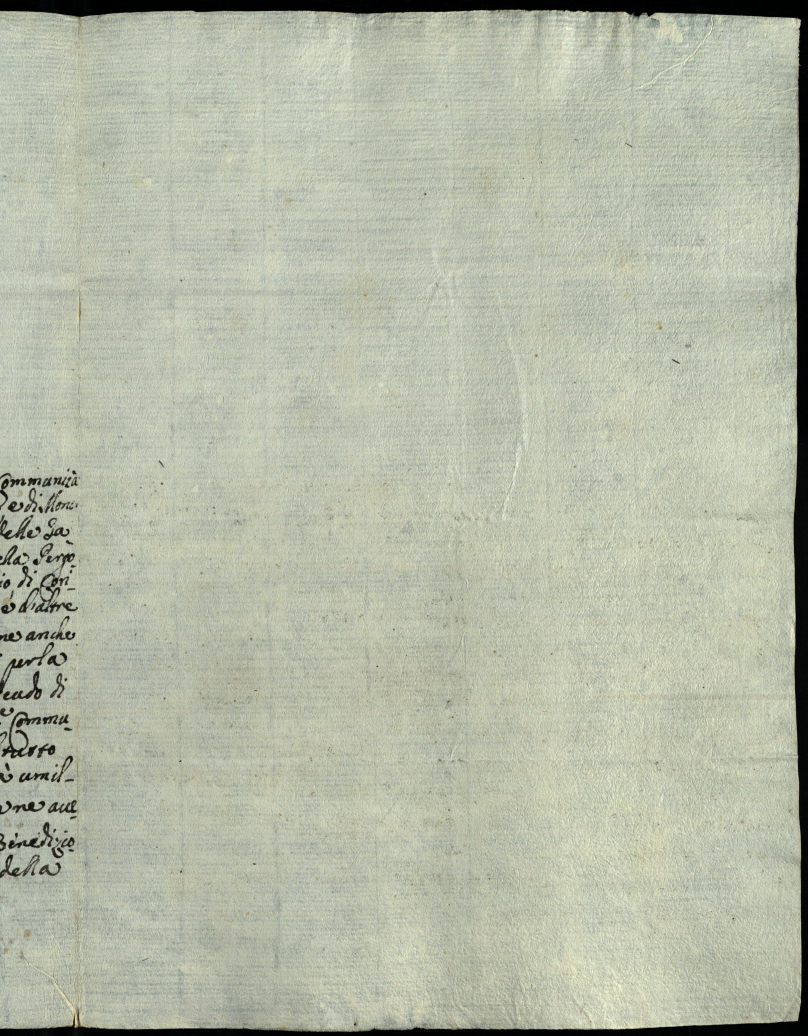 Communità
e di Mon-
delle Ga-
ella Perpo-
io di Cori-
é d'altre
ne anche
per la
feudo di
e Commu-
l tutto
à umil-
ne aue-
Benedizio-
della